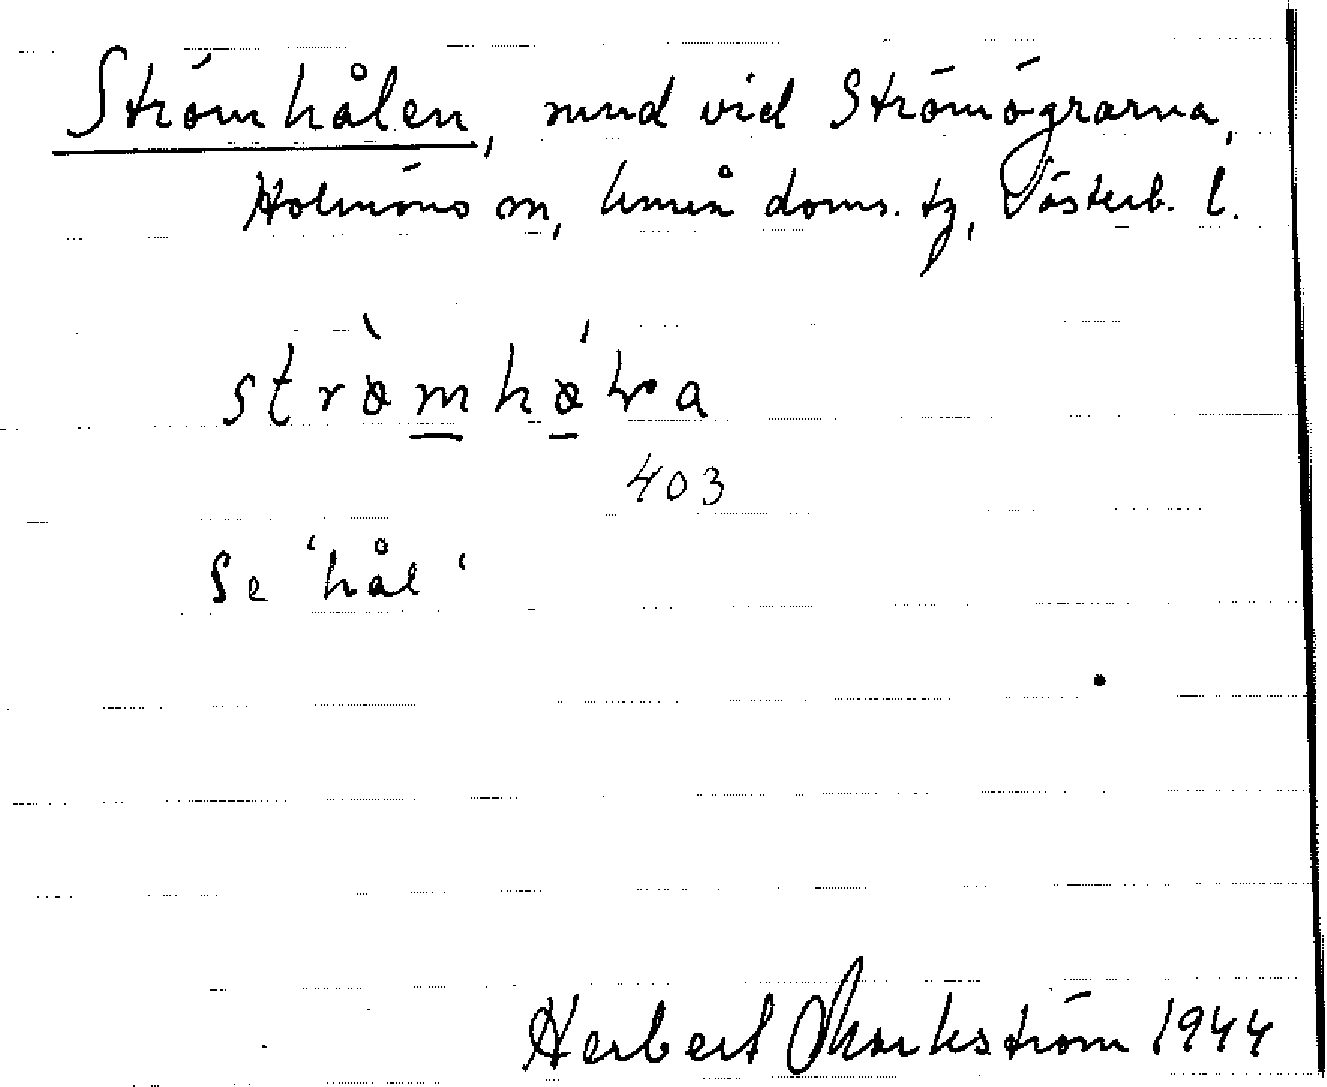 Strömhålen, sund vid Strömögrarna,
Holmöns sn, Umeå doms. tg, Västerb. l.
403
Se 'hål'
Herbert Markström 1944